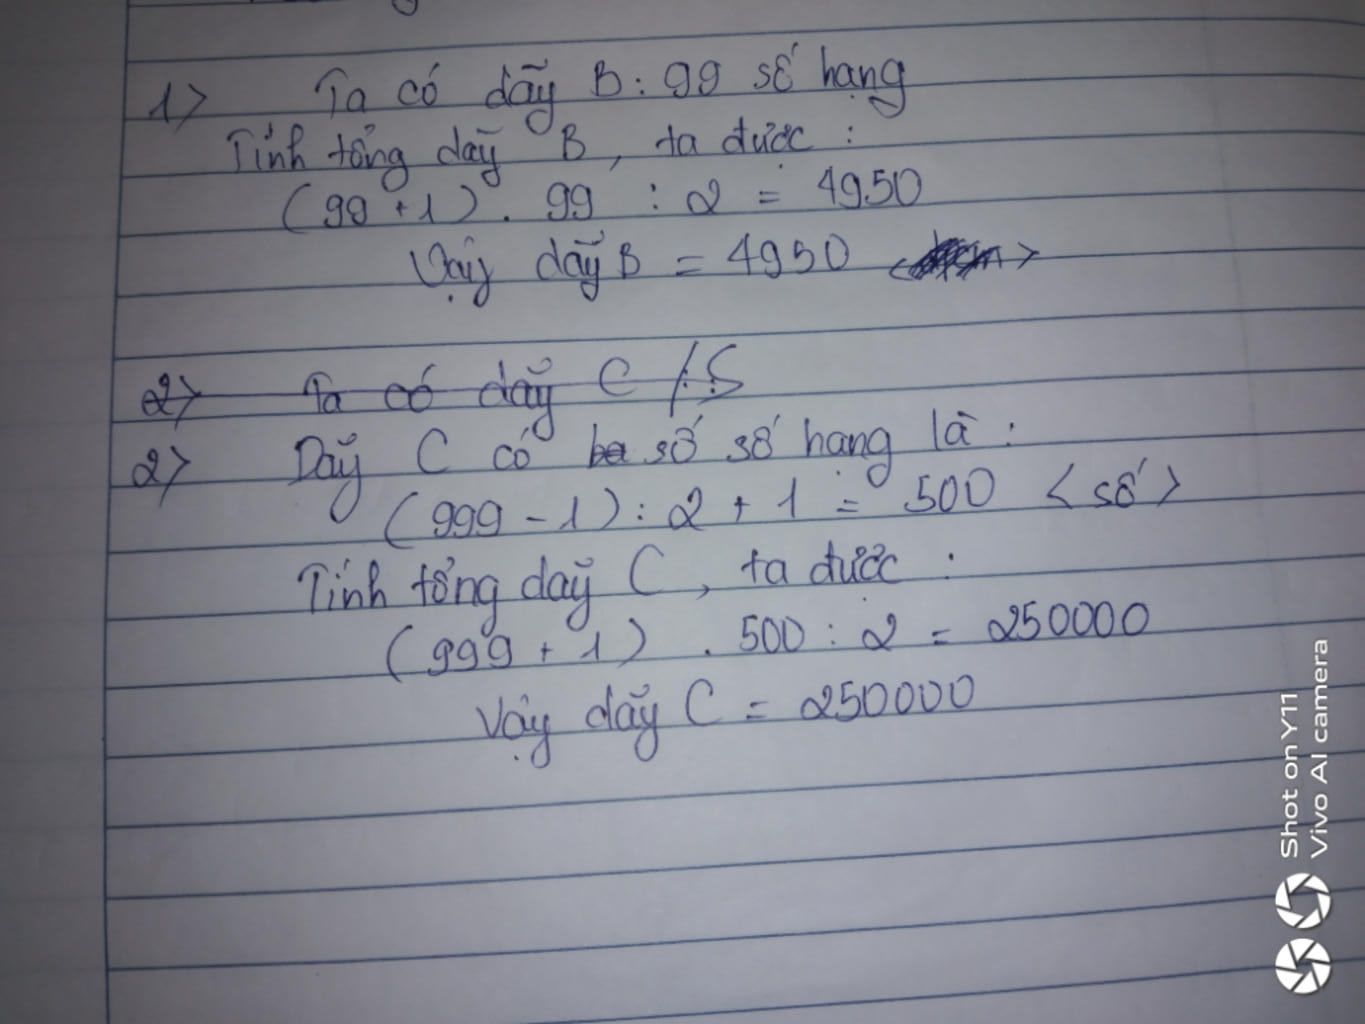 1> Ta có dãy B: 99 số hạng
Tính tổng dãy B, ta được:
(99 + 1) . 99 : 2 = 4950
Vậy dãy B = 4950
2> Ta có dãy C
2> Dãy C có số số hạng là:
(999 - 1) : 2 + 1 = 500 <số>
Tính tổng dãy C, ta được:
(999 + 1) . 500 : 2 = 250000
Vậy dãy C = 250000
Shot on Y11
Vivo AI camera